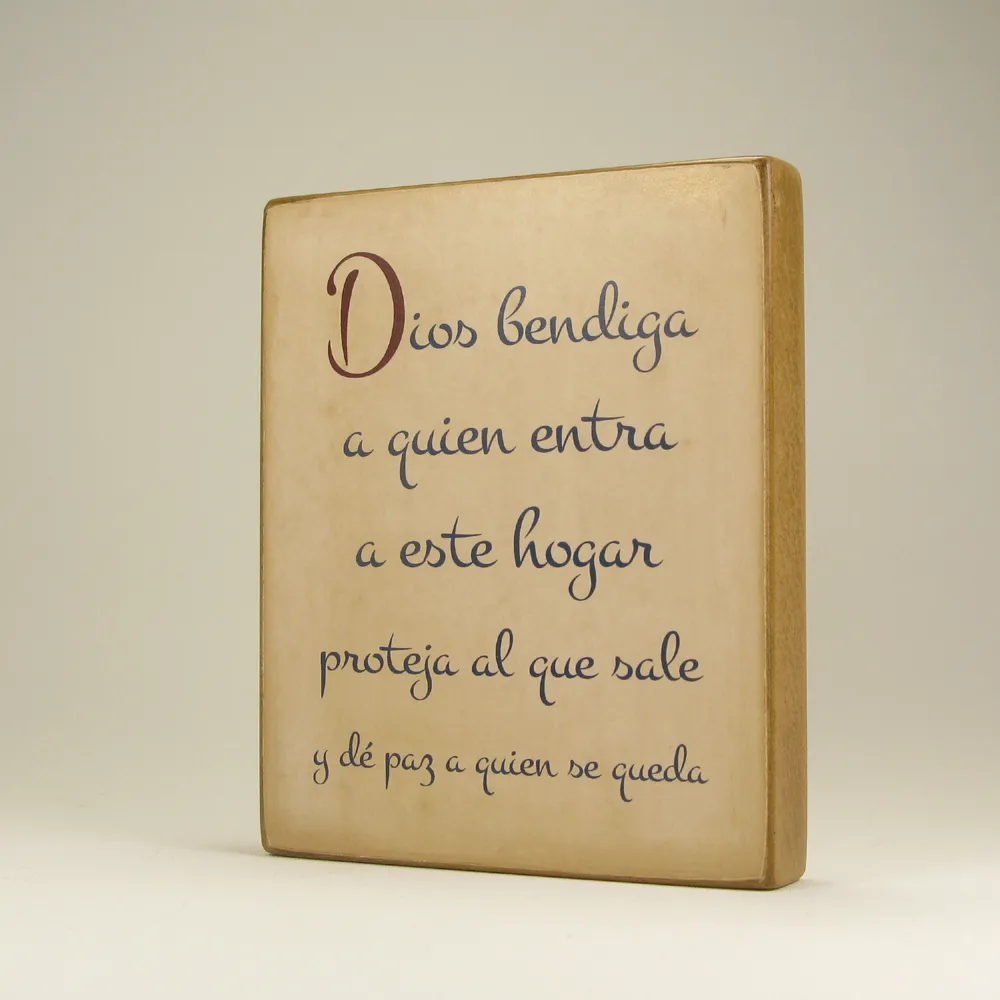 Dios bendiga
a quien entra
a este hogar
proteja al que sale
y dé paz a quien se queda